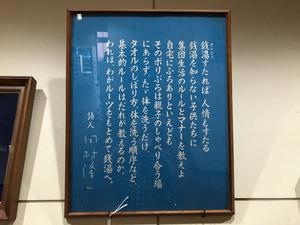 銭湯すたれば 人情もすたる
銭湯を知らない子供たちに
集団生活のルールとマナーを教えよ
自宅にふろありといえども
そのポリぶろは親子のしゃべり合う場
にあらず、ただ体を洗うだけ。
タオルのしぼり方、体を洗う順序など、
基本的ルールはだれが教えるのか。
われは、わがルーツをもとめて銭湯へ。
詩人 田村隆一